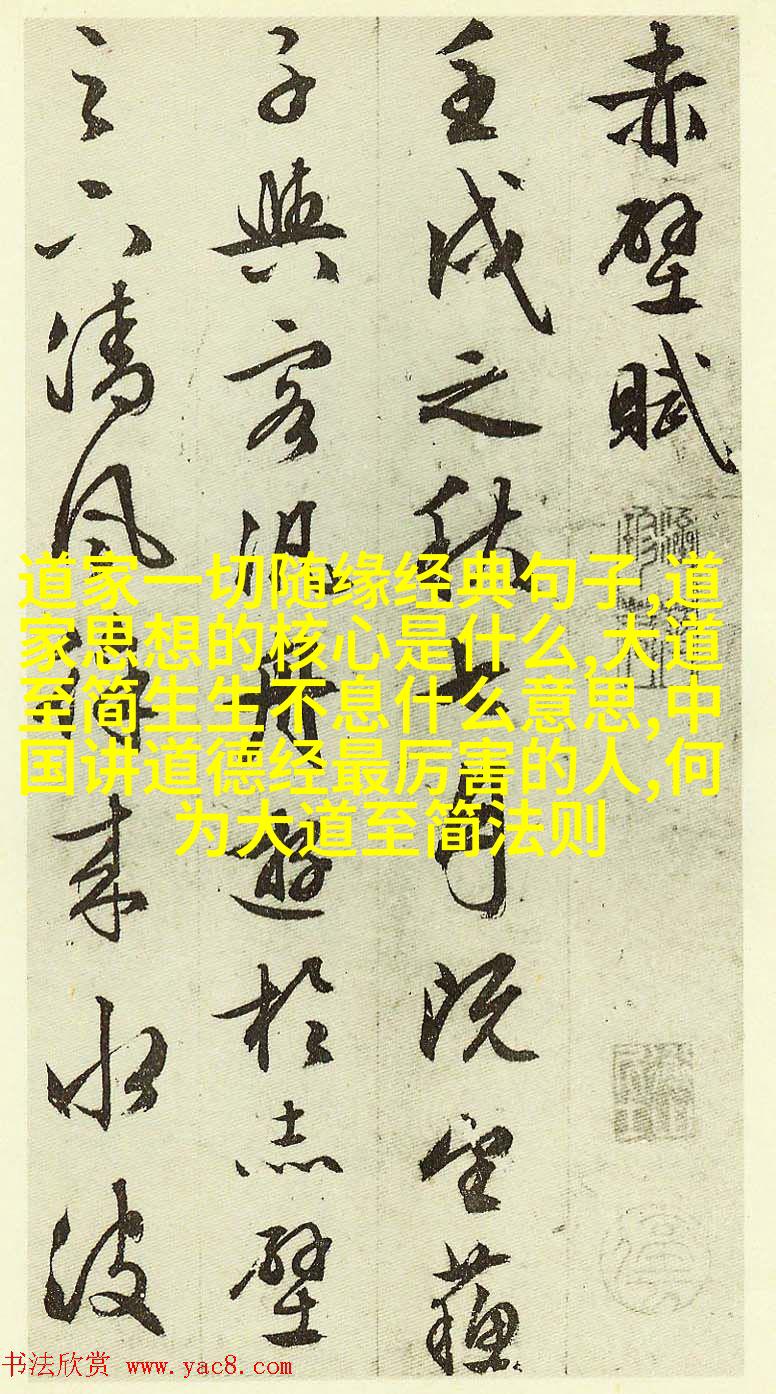 赤壁賦
壬戌之秋七月既望蘇
子與客泛舟遊於赤壁
之下清風徐來水波
道家一切随缘经典句子,道
家思想的核心是什么,大道
至简生生不息什么意思,中
国讲道德经最厉害的人,何
为大道至简法则
书法欣赏 www.yac8.com